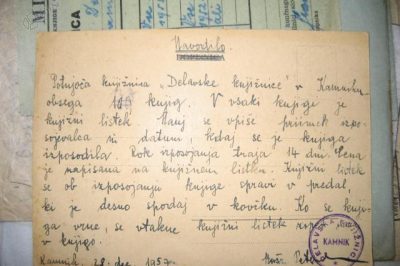 Navodilo
Potujoča knjižnica „Delavske knjižnice" v Kamniku
obsega 100 knjig. V vsaki knjigi je
knjižni listek. Nanj se vpiše priimek izpo-
sojevalca in datum, kdaj se je knjiga
izposodila. Rok izposojanja traja 14 dni. Cena
je napisana na knjižnem listku. Knjižni listek
se ob izposojanju knjige spravi v predal,
ki je desno spodaj v kovčku. Ko se knji-
ga vrne, se vtakne knjižni listek
v knjigo.
Kamnik, 28. dec. 1957
DELAVSKA KNJIŽNICA
KAMNIK